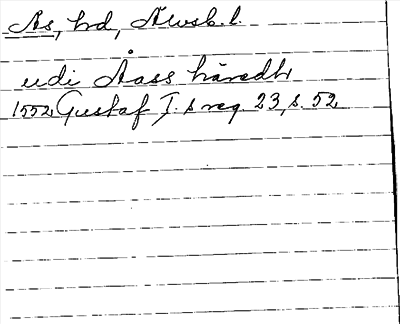 Ås, hd, Älvsb. l.
udi Åass häredh
1552 Gustaf I:s reg. 23, s. 52